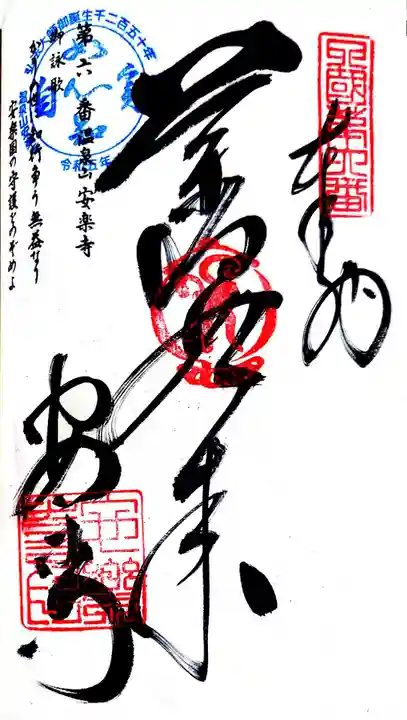 奉納
四国第六番
薬師如来
安楽寺
弘法大師御誕生千二百五十年
令和五年
第六番温泉山安楽寺
御詠歌
かりの世に知行争う無益なり
安楽国の守護をのぞめよ